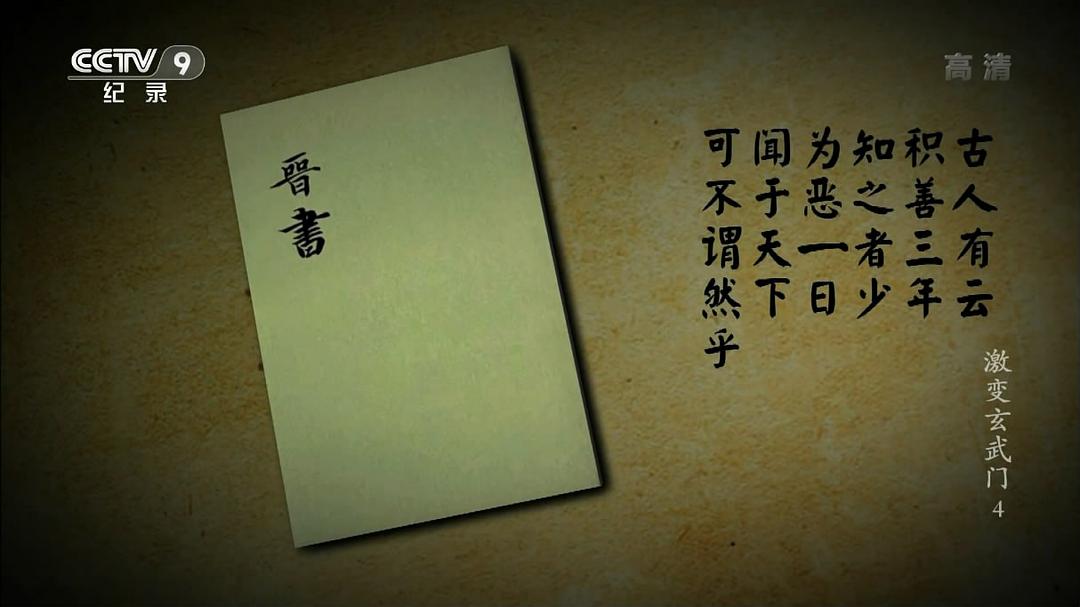 CCTV 9
纪录
高清
晋書
古人有云
积善三年
知之者少
为恶一日
闻于天下
可不谓然乎
激变玄武门 4